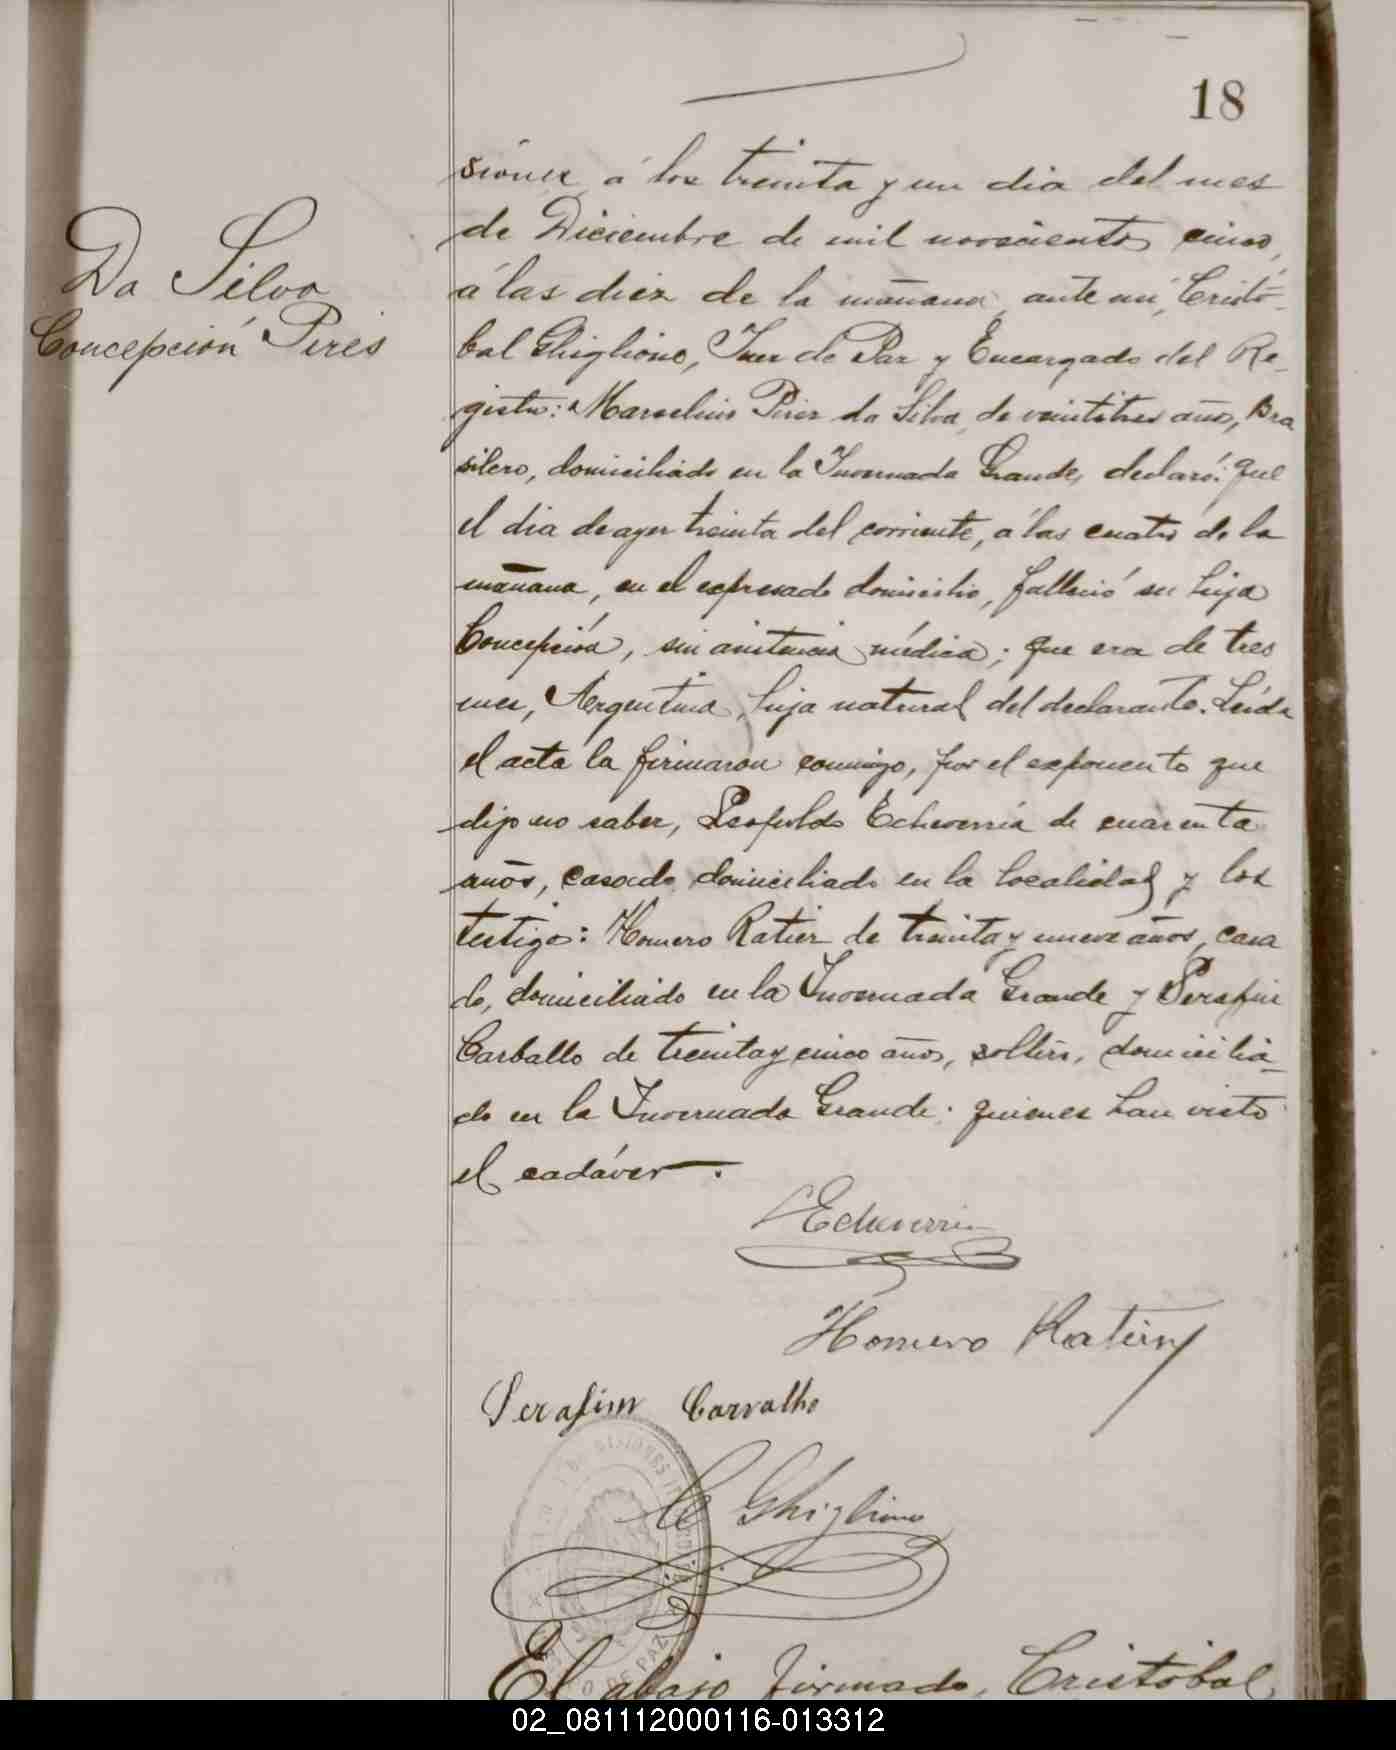 18
Da Silva
Concepción Pires
siones á los treinta y un dia del mes
de Diciembre de mil novecientos cinco,
á las diez de la mañana, ante mi, Cristó-
bal Ghiglione, Juez de Paz y Encargado del Re-
gistro: Marcelino Pires da Silva, de veintitres años, Bra
silero, domiciliado en la Invernada Grande, declaró: que
el dia de ayer treinta del corriente, á las cuatro de la
mañana, en el expresado domicilio, falleció su hija
Concepción, sin asistencia médica; que era de tres
mes, Argentina, hija natural del declarante. Leida
el acta la firmaron conmigo, por el exponente que
dijo no saber, Leopoldo Echeverría de cuarenta
años, casado, domiciliado en la localidad y los
testigos: Homero Ratier de treinta y nueve años, casa
do, domiciliado en la Invernada Grande y Serafin
Carballo de treinta y cinco años, soltero, domicilia-
do en la Invernada Grande; quienes han visto
el cadáver.
L Echeverria
Homero Ratier
Serafim Carvalho
C Ghiglione
MISIONES
DE PAZ
El abajo firmado, Cristóbal
02_081112000116-013312